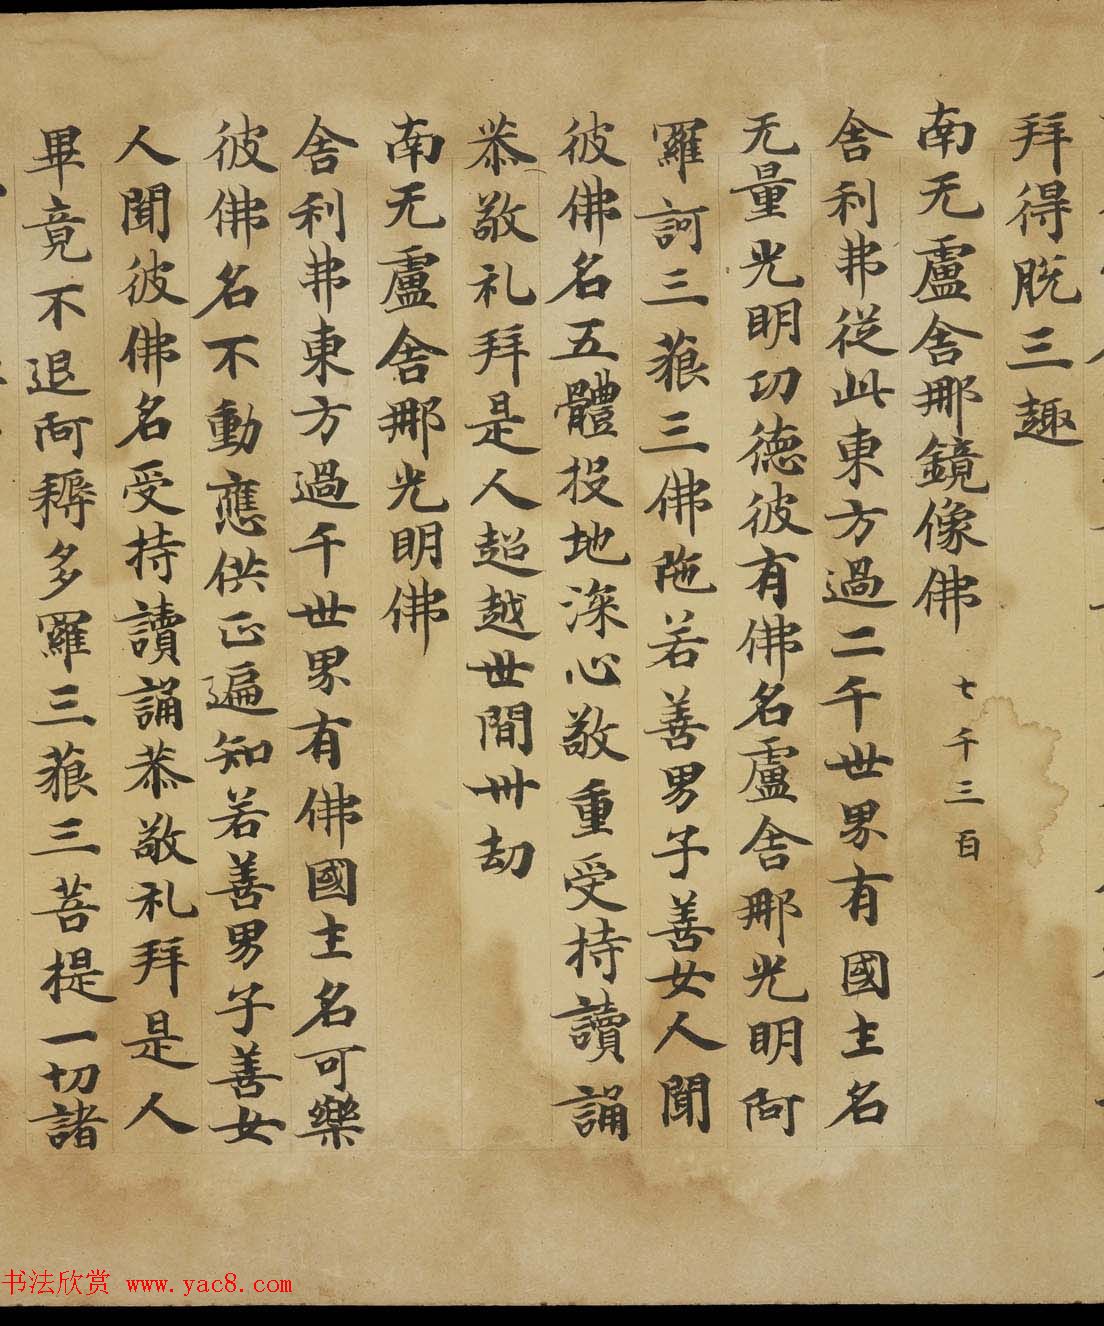 拜得脱三趣
南无盧舍那鏡像佛 七千三百
舍利弗從此東方過二千世界有國主名
无量光明功德彼有佛名盧舍那光明阿
羅訶三藐三佛陁若善男子善女人聞
彼佛名五體投地深心敬重受持讀誦
恭敬礼拜是人超越世間卅劫
南无盧舍那光明佛
舍利弗東方過千世界有佛國主名可樂
彼佛名不動應供正遍知若善男子善女
人聞彼佛名受持讀誦恭敬礼拜是人
畢竟不退阿耨多羅三藐三菩提一切諸
书法欣赏 www.yac8.com